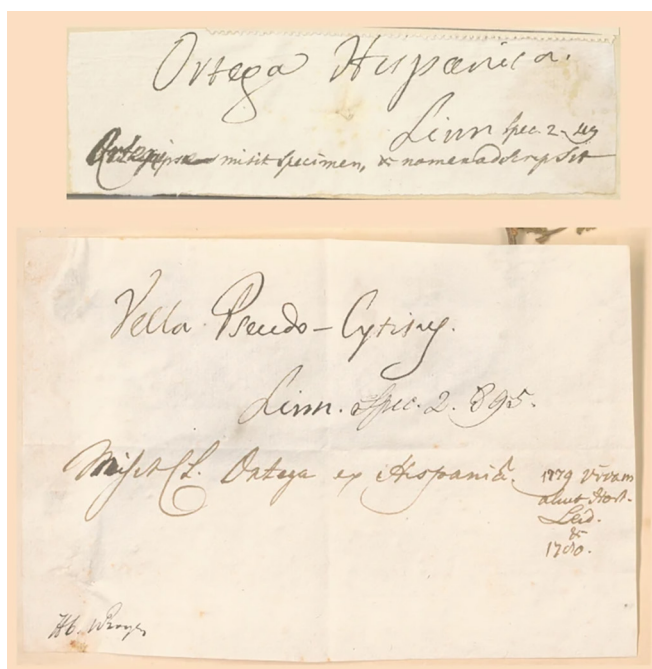 Ortega Hispanica.
Linn spec. 2.
misit specimen, & nomen adscripsit
Vella Pseudo-Cytisus.
Linn. Spec. 2. 895.
Misit Cl. Ortega ex Hispaniâ.
1779 vivam
aluit Hort.
Leid.
&
1780.